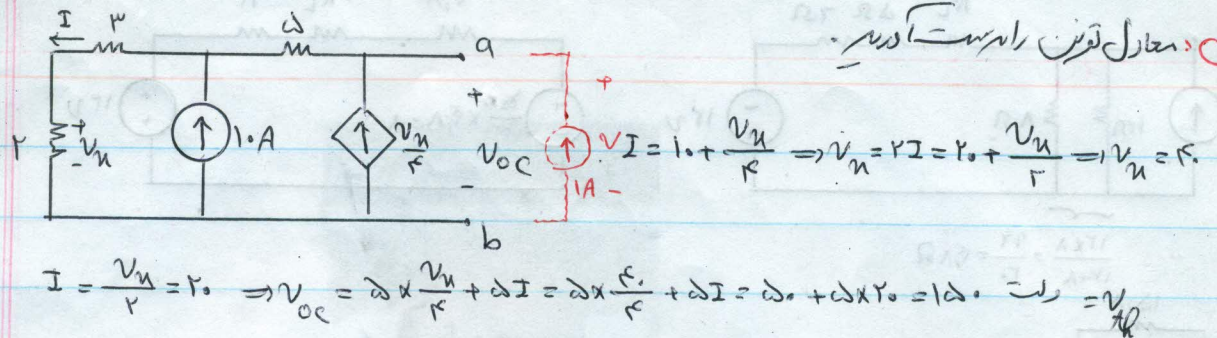 معادل تونن را بدست آورید.
I ۳ ۵ a
۲ + Vx - ۱۰A Vx/۴ + Voc - + V ۱A -
I = ۱۰ + Vx/۴ ⇒ Vx = ۲I = ۲۰ + Vx/۲ ⇒ Vx = ۴۰
b
I = Vx/۲ = ۲۰ ⇒ Voc = ۵ × Vx/۴ + ۵I = ۵ × ۴۰/۴ + ۵I = ۵۰ + ۵×۲۰ = ۱۵۰ ولت = Vth